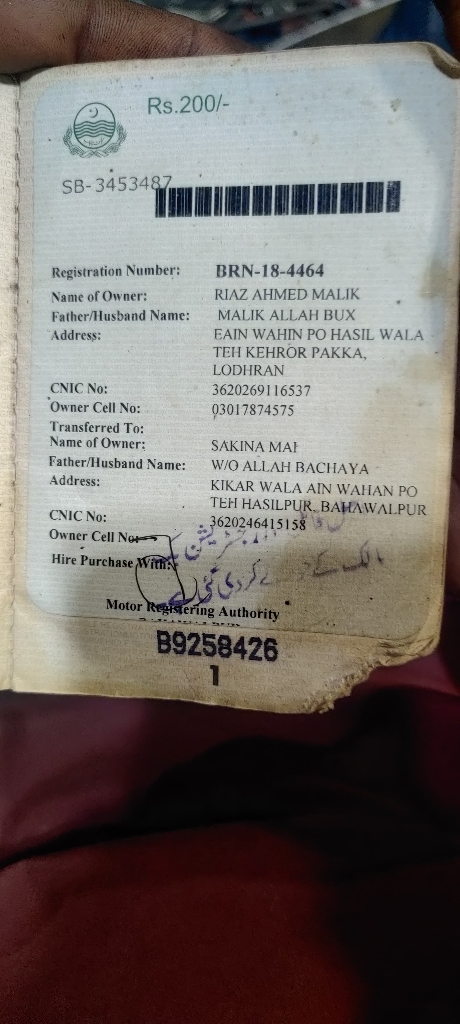 Rs.200/-
SB-3453487
Registration Number: BRN-18-4464
Name of Owner: RIAZ AHMED MALIK
Father/Husband Name: MALIK ALLAH BUX
Address: EAIN WAHIN PO HASIL WALA
TEH KEHROR PAKKA,
LODHRAN
CNIC No: 3620269116537
Owner Cell No: 03017874575
Transferred To:
Name of Owner: SAKINA MAI
Father/Husband Name: W/O ALLAH BACHAYA
Address: KIKAR WALA AIN WAHAN PO
TEH HASILPUR, BAHAWALPUR
CNIC No: 3620246415158
Owner Cell No:
Hire Purchase With:
رجسٹریشن
مالک کے کر دی گئی ہے
Motor Registering Authority
B9258426
1